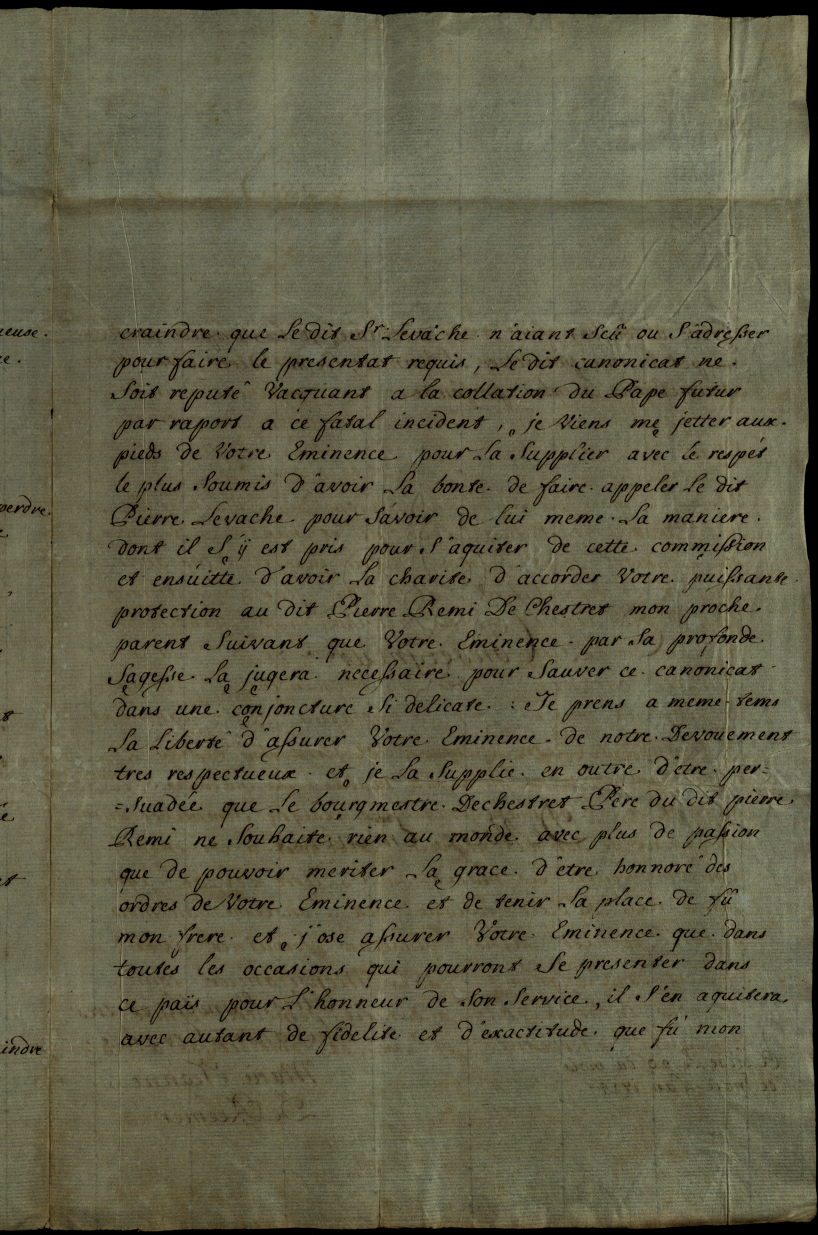 craindre que Le dit Sr. Levache n'aiant sceû ou S'adresser
pour faire le presentat requis, Le dit canonicat ne
Soit reputé Vacquant a la collation du Pape futur
par raport a ce fatal incident, je Viens me jetter aux
pieds de Votre Eminence pour La Supplier avec le respét
le plus Soumis d'avoir La bonte de faire appeler Le dit
Pierre Levache pour Savoir de lui meme La maniere
dont il S'ÿ est pris pour S'aquiter de cette commission
et ensuitte d'avoir La charite d'accorder Votre puissante
protection au dit Pierre Remi De Chestret mon proche
parent Suivant que Votre Eminence par Sa profonde
Sagesse La jugera necessaire pour Sauver ce canonicat
dans une conjoncture Si delicate : Je prens a meme tems
La Liberté d'assurer Votre Eminence de notre Devouement
tres respectueux et je La Supplie en outre d'etre per=
=Suadée que Le bourgmestre Dechestret Pere du dit pierre
Remi ne Souhaite rien au monde avec plus de passion
que de pouvoir meriter La grace d'etre honnoré des
ordres de Votre Eminence et de tenir La place de fû
mon frere et j'ose assurer Votre Eminence que dans
toutes les occasions qui pourront Se presenter dans
ce païs pour L'honneur de Son Service, il S'en aquitera
avec autant de fidelite et d'exactitude que fû mon
euse.
e.
perdre
t
é
et
indre